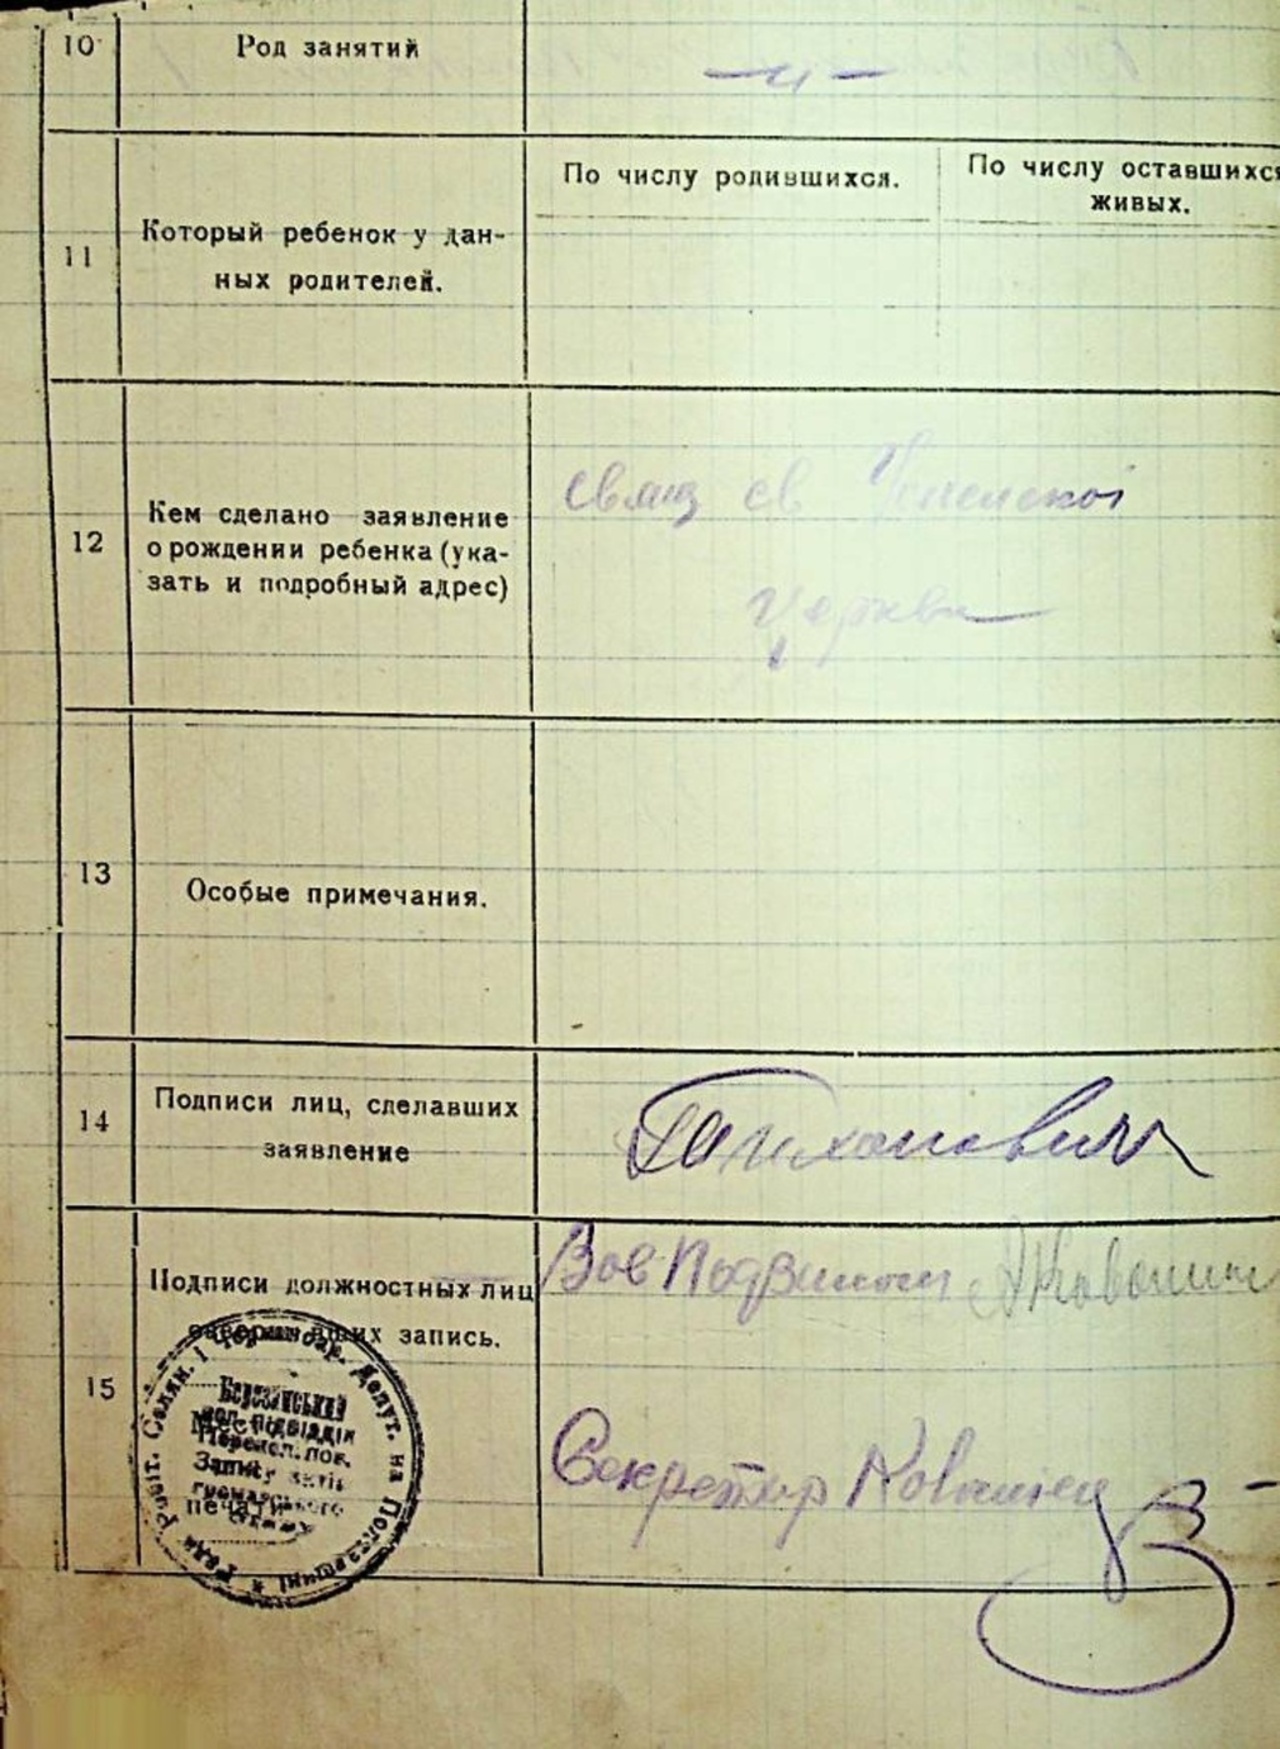 10
Род занятий
— „ —
11
Который ребенок у дан-
ных родителей.
По числу родившихся.
По числу оставшихся
живых.
12
Кем сделано заявление
о рождении ребенка (ука-
зать и подробный адрес)
Свящ св Успенской
Церкви
13
Особые примечания.
14
Подписи лиц, сделавших
заявление
15
Подписи должностных лиц
запись.
Зав
Секретар
Рада Робіт. Селян. і Червоноар. Депут. на Полтавщині *
Березанський
вол. підвідділ
Запису актів
громадського
стану
Место
печати